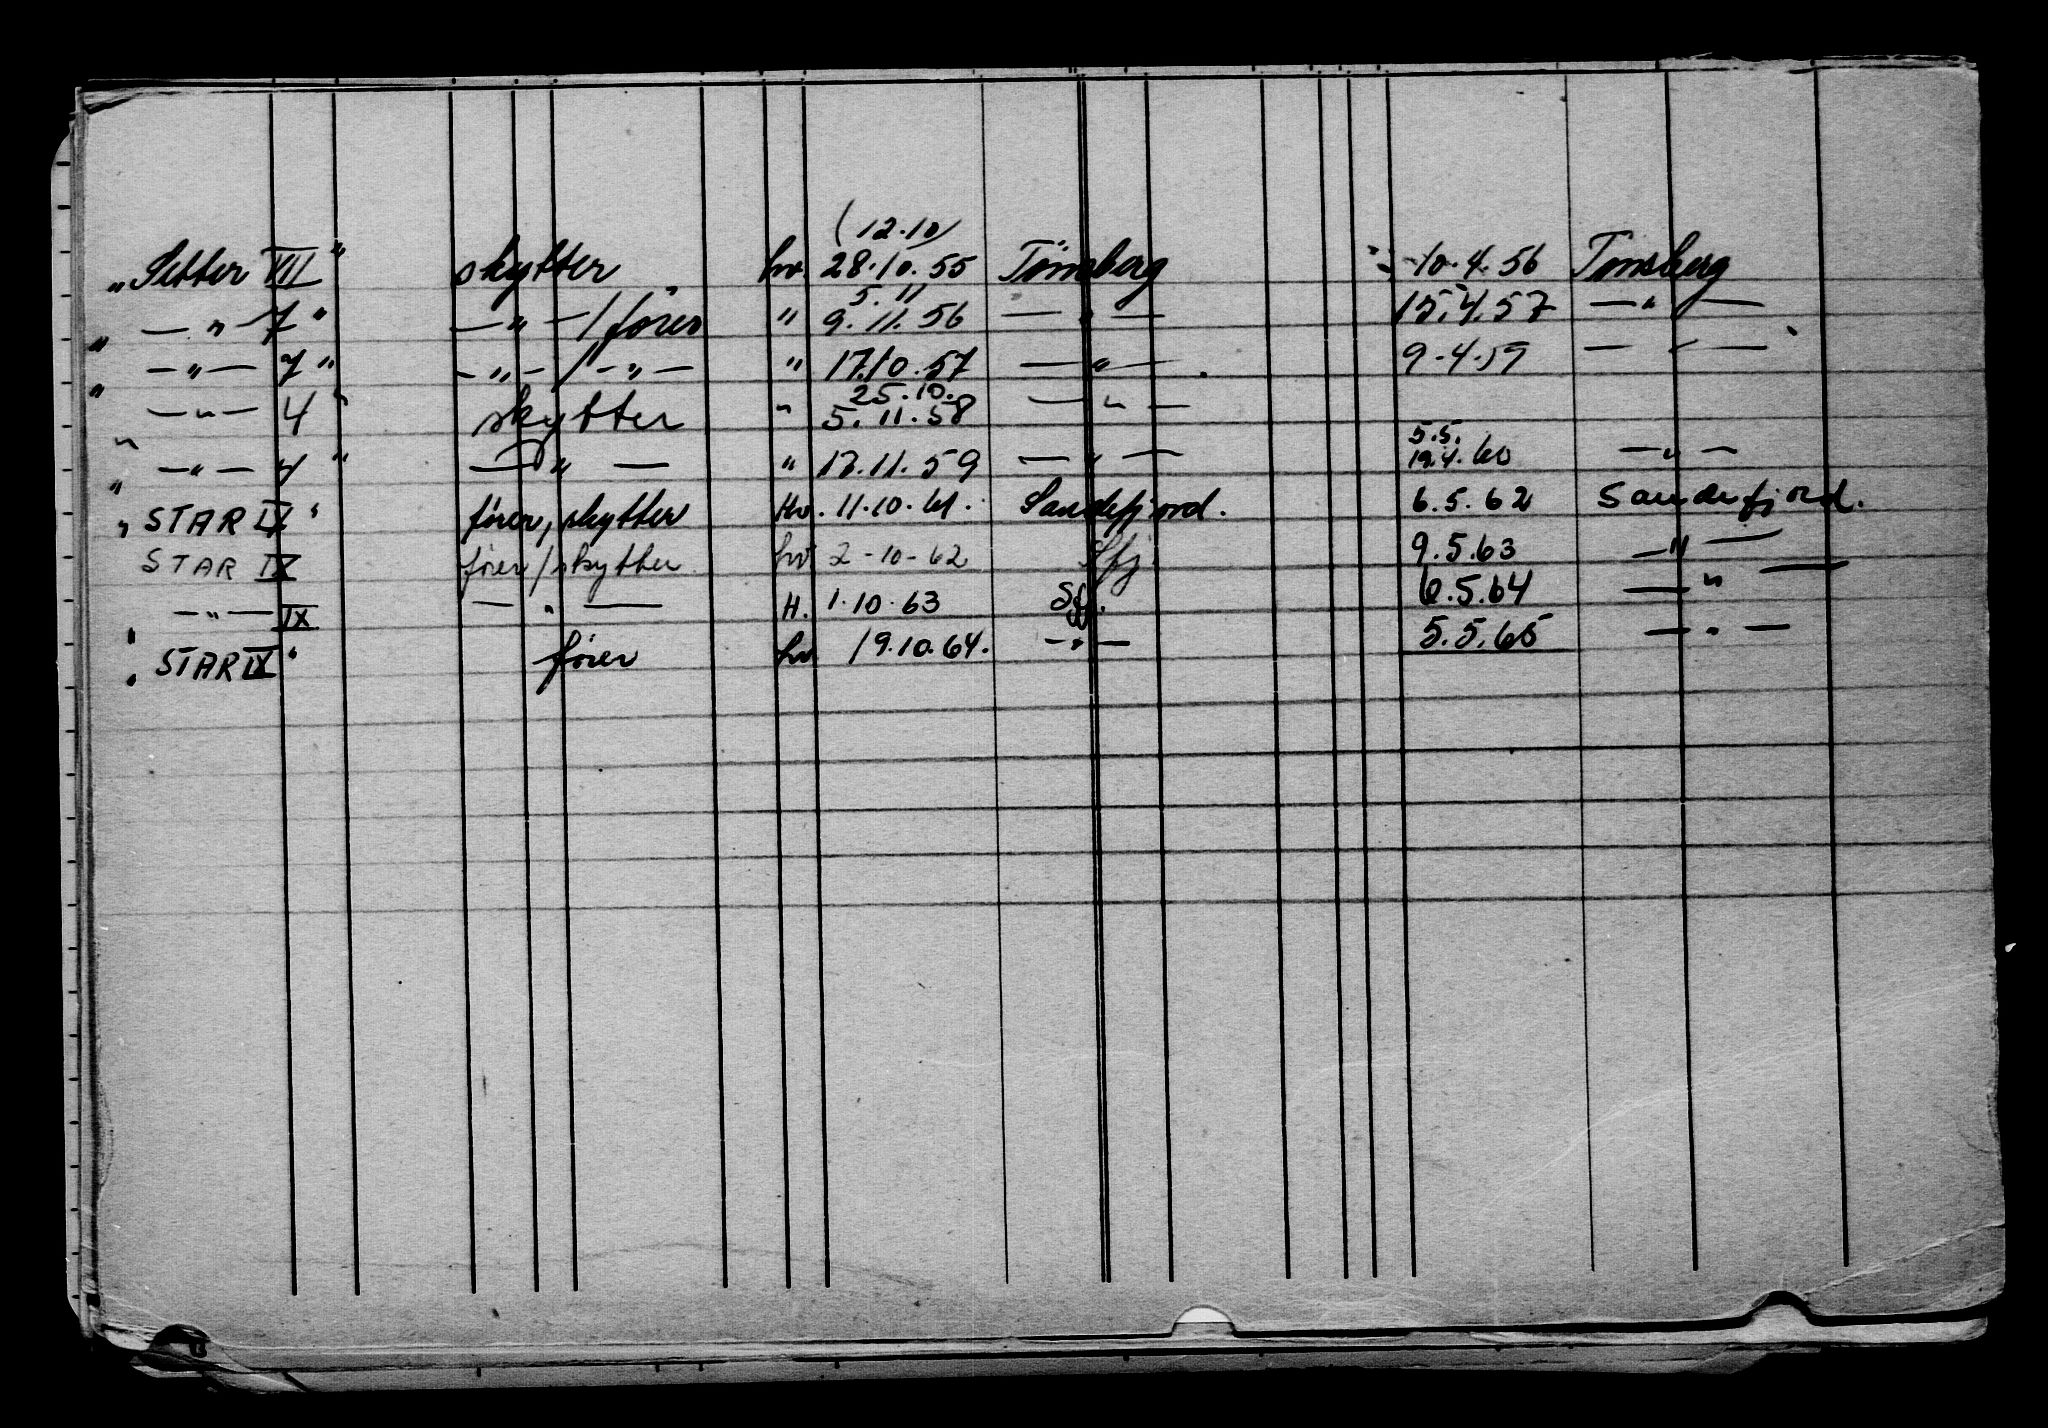 (12.10)
„Setter VII" skytter hv. 28.10.55 Tønsberg 10.4.56 Tønsberg
5.11
„ —"— 7" —"—/fører " 9.11.56 —"— 15.4.57 —"—
„ —"— 7" —"—/—"— " 17.10.57 —"— 9.4.59 —"—
25.10.
„ —"— 4" skytter " 5.11.58 —"—
5.5.
„ —"— 4" —"— " 17.11.59 —"— 19.4.60 —"—
„ STAR IX" fører, skytter Hv. 11.10.61. Sandefjord. 6.5.62 Sandefjord.
STAR IX fører/skytter hv 2-10-62 Sfj 9.5.63 —"—
—"— IX —"— H. 1.10.63 Sfj. 6.5.64 —"—
„ STAR IX" fører hv 19.10.64. —"— 5.5.65 —"—